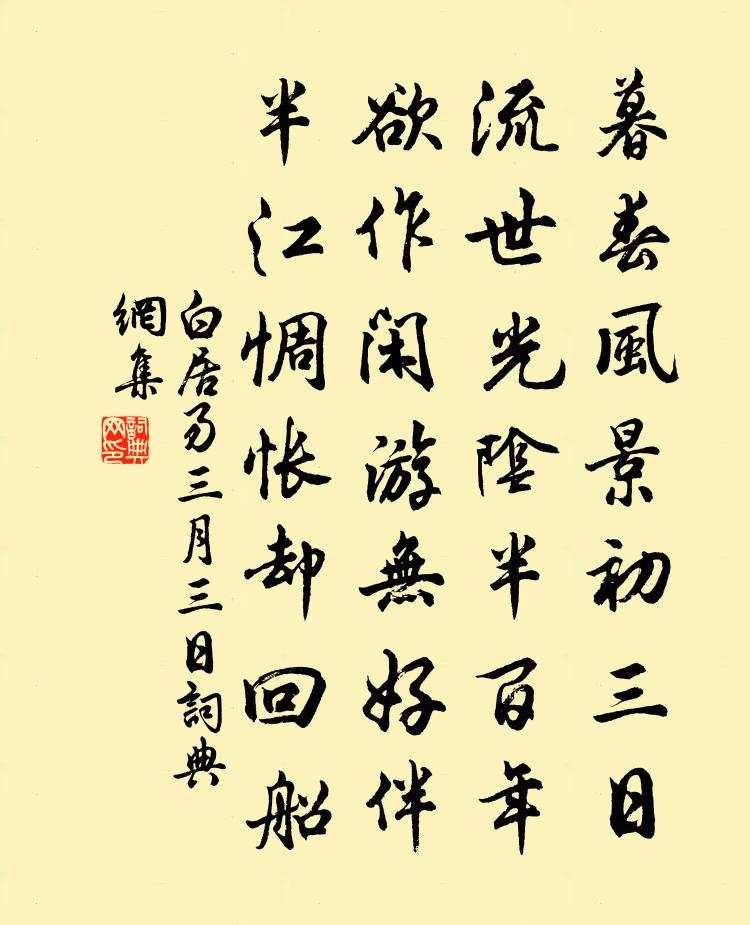 暮春風景初三日
流世光陰半百年
欲作閑游無好伴
半江惆怅却回船
白居易三月三日詞典
網集
詞典
网印